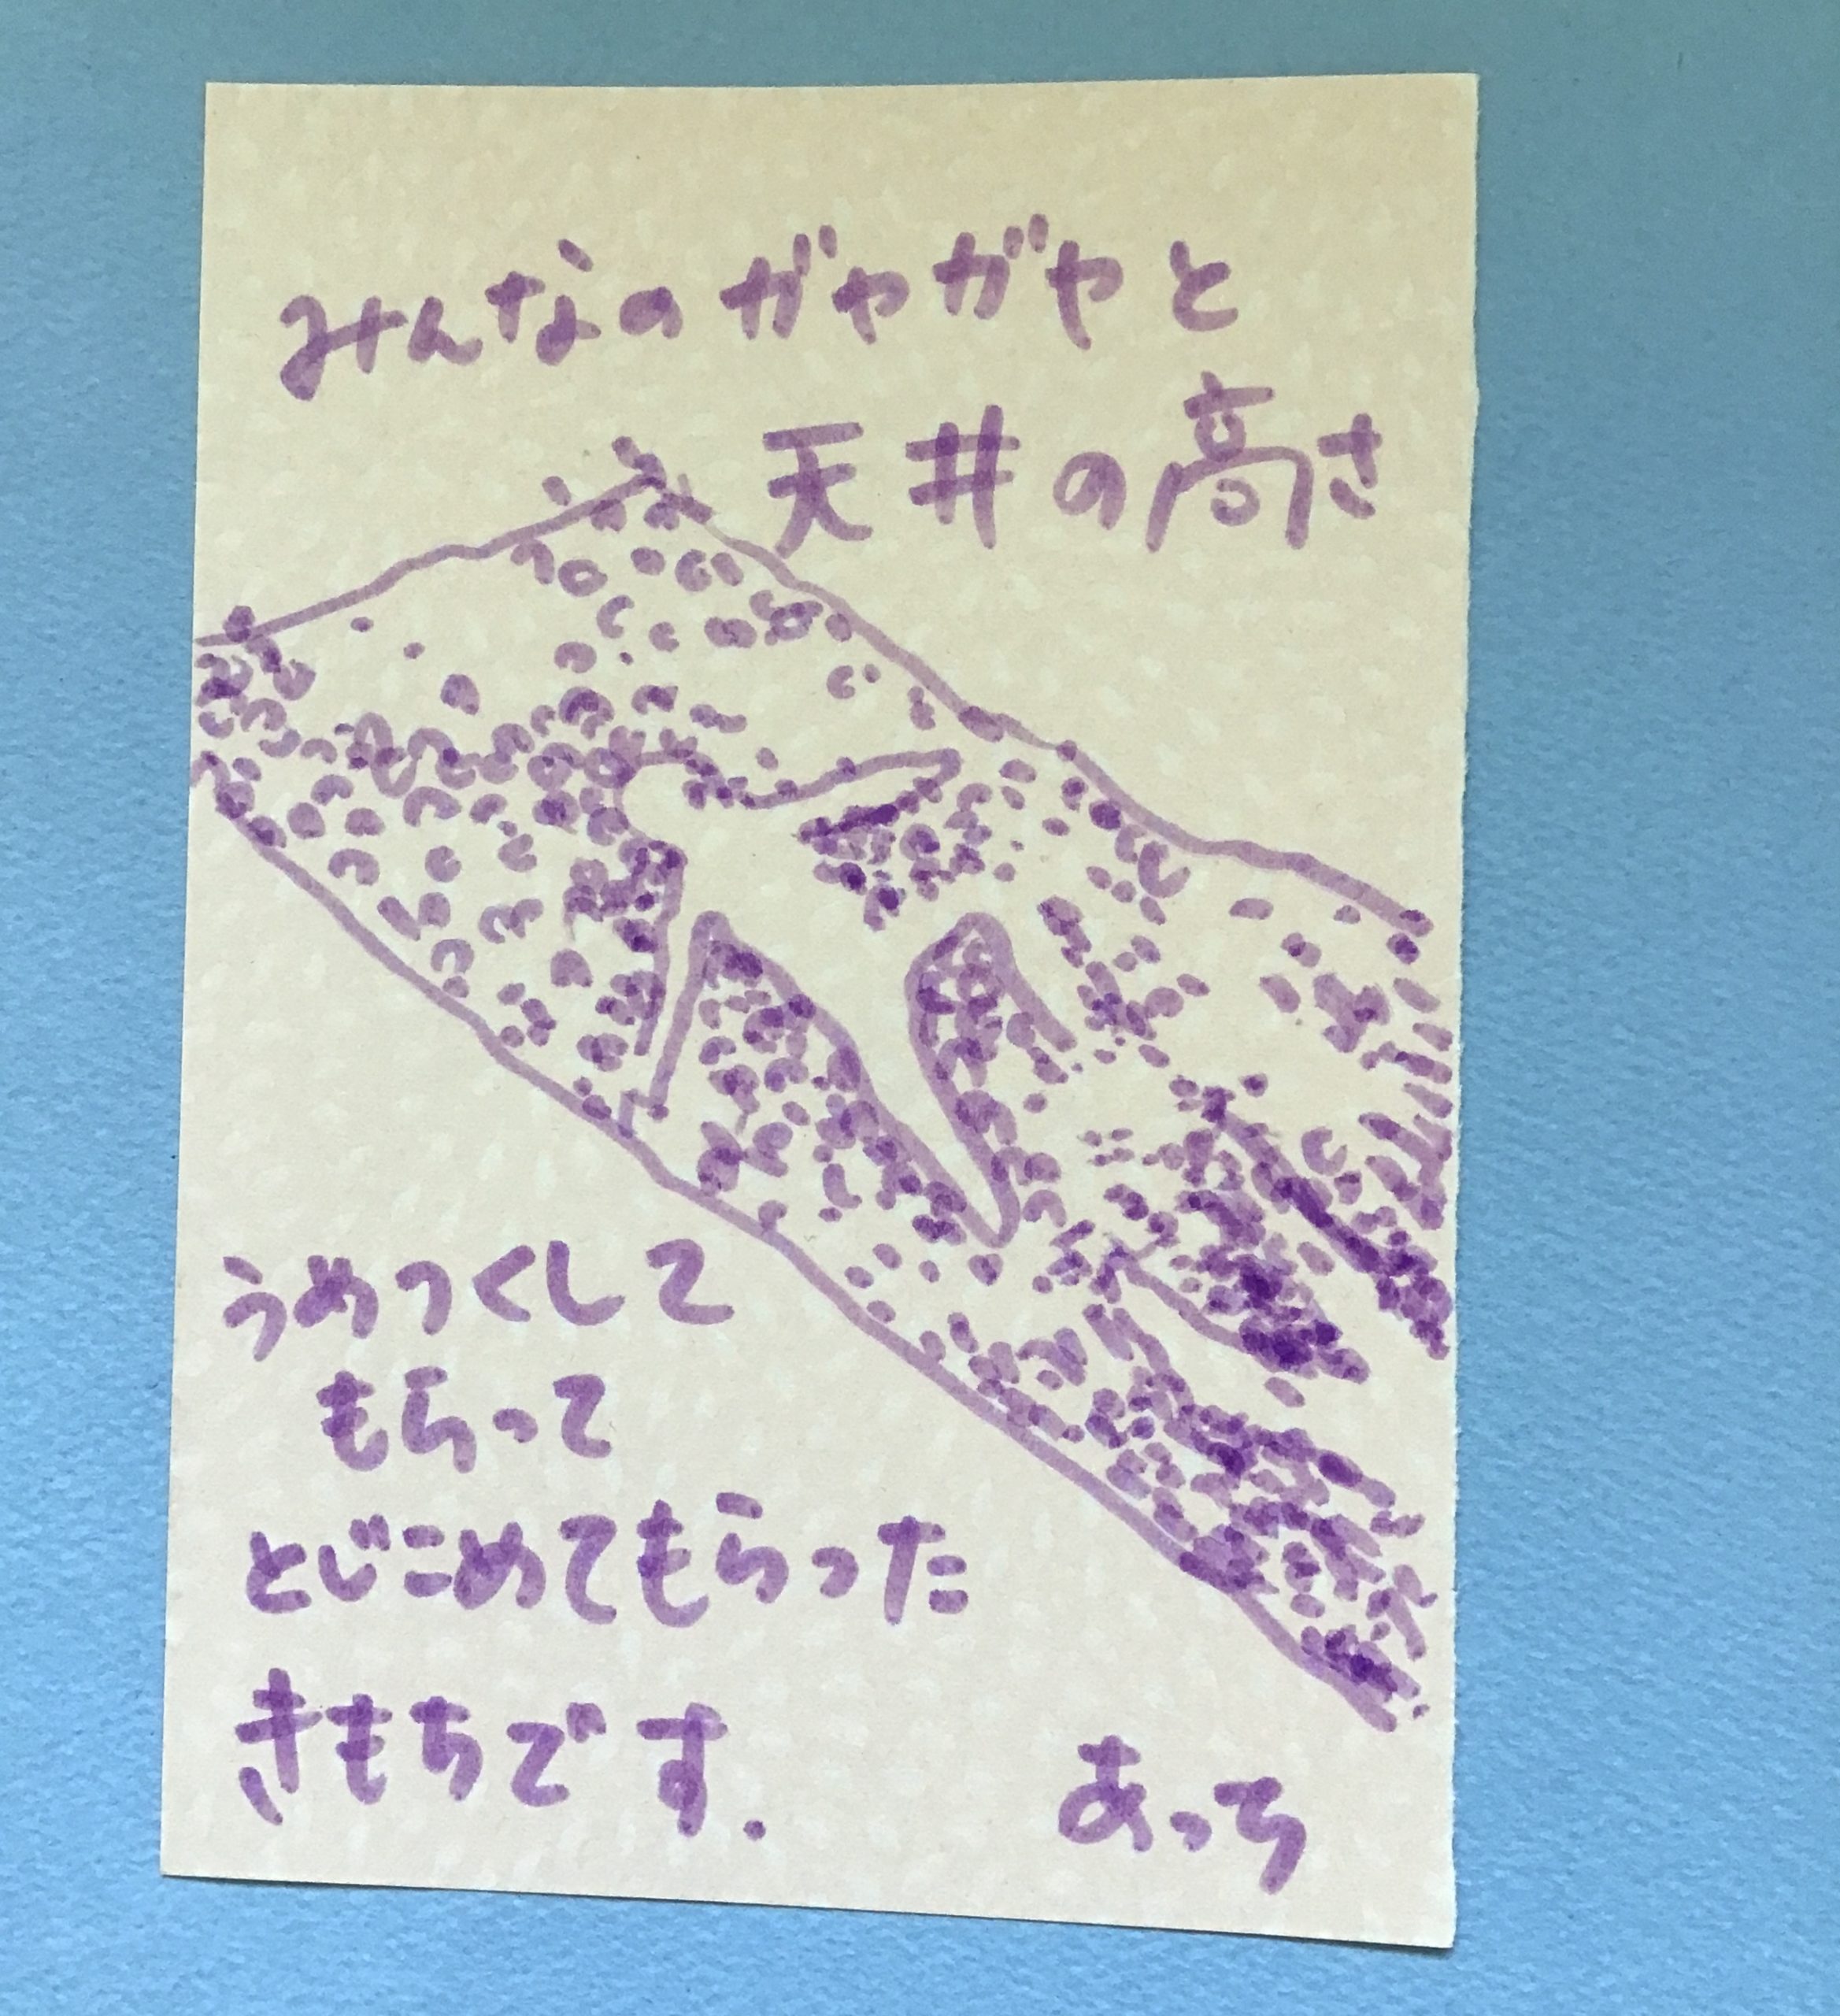 みんなのガヤガヤと
天井の高さ
うめつくして
もらって
とじこめてもらった
きもちです.
あっち